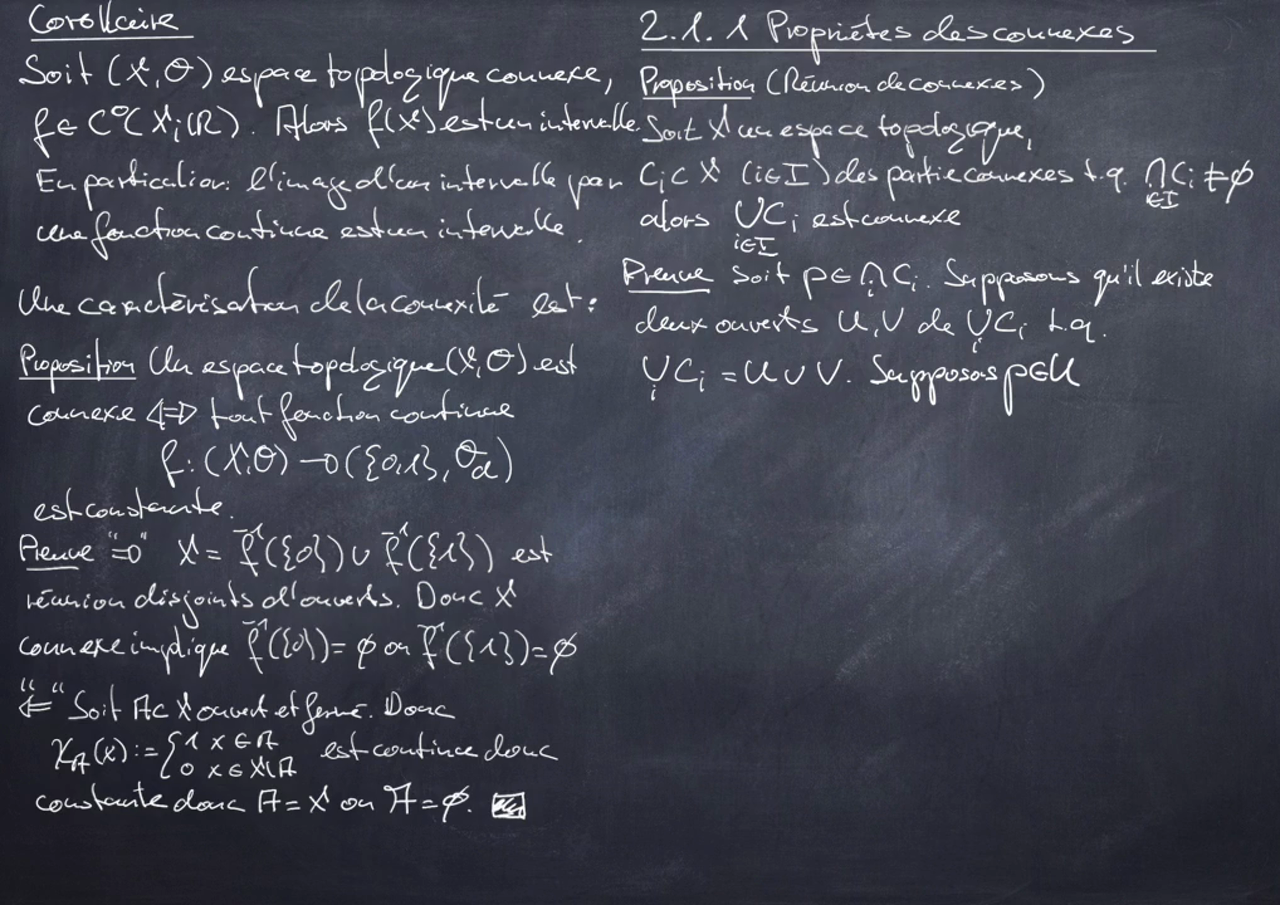 Corollaire
Soit (X, O) espace topologique connexe,
f ∈ C⁰(X; ℝ). Alors f(X) est un intervalle.
En particulier: l'image d'un intervalle par
une fonction continue est un intervalle.
Une caractérisation de la connexité est:
Proposition Un espace topologique (X, O) est
connexe ⇔ tout fonction continue
f: (X, O) → ({0,1}, O_d)
est constante.
Preuve "⇒" X = f⁻¹({0}) ∪ f⁻¹({1}) est
réunion disjoints d'ouverts. Donc X
connexe implique f⁻¹({0}) = ∅ ou f⁻¹({1}) = ∅
"⇐" Soit A ⊂ X ouvert et fermé. Donc
χ_A(x) := { 1 x ∈ A
0 x ∈ X\A est continue donc
constante donc A = X ou A = ∅.
2.1.1 Propriétés des connexes
Proposition (Réunion de connexes)
Soit X un espace topologique,
C_i ⊂ X (i ∈ I) des partie connexes t.q. ⋂_{i∈I} C_i ≠ ∅
alors ⋃_{i∈I} C_i est connexe
Preuve Soit p ∈ ⋂_i C_i. Supposons qu'il existe
deux ouverts U, V de ⋃_i C_i t.q.
⋃_i C_i = U ∪ V. Supposos p ∈ U